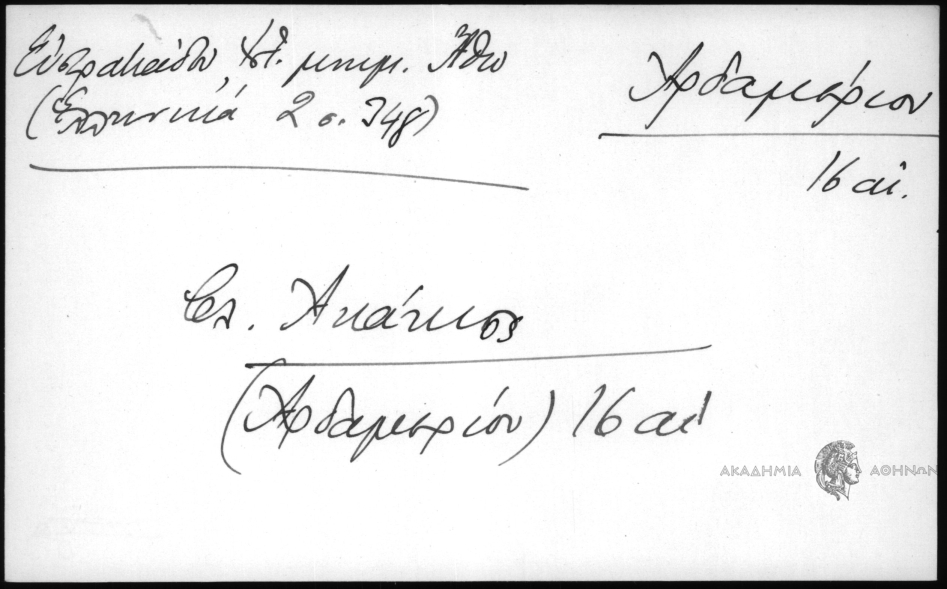 Εὐστρατιάδου, Ἱστ. μνημ. Ἄθω
(Ἑλληνικά 2 σ. 348)
Ἀρδαμερίου
16 αἰ.
βλ. Ἀκάκιος
(Ἀρδαμερίου) 16 αἰ
ΑΚΑΔΗΜΙΑ ΑΘΗΝΩΝ